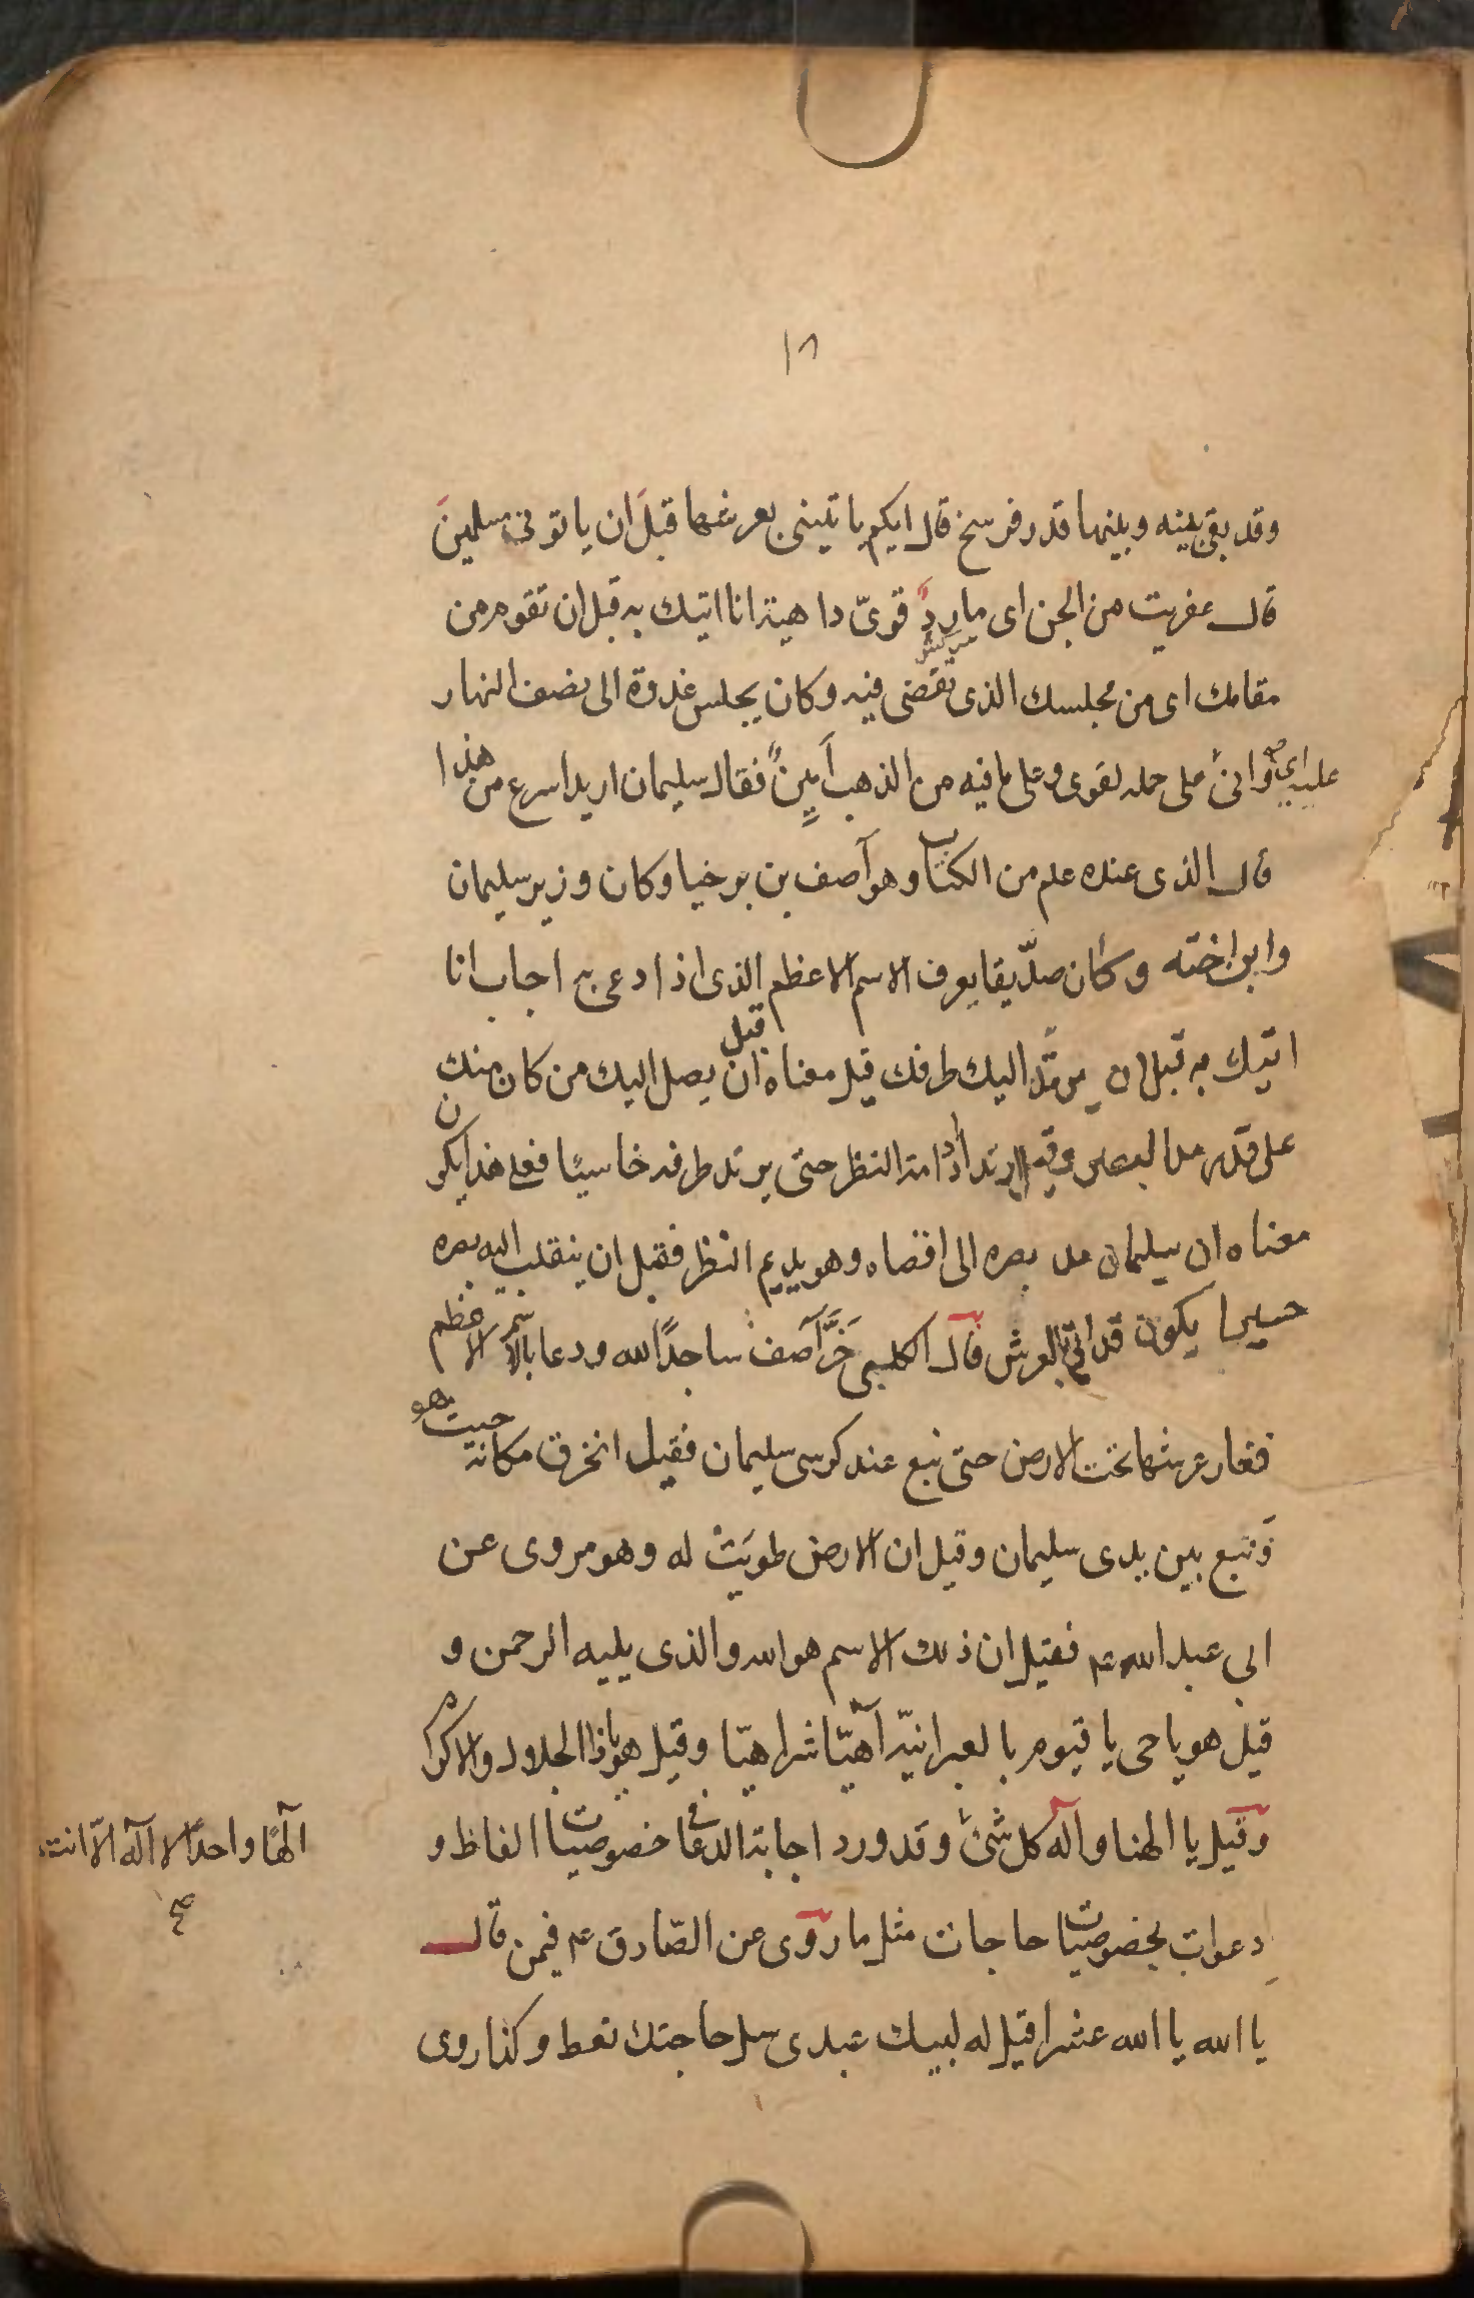 ١٨
وقد بقى بينه وبينها قدر فرسخ قال ايكم ياتينى بعرشها قبل ان ياتونى مسلمينَ
قال عفريت من الجن اى ماردٌ قوىّ داهية انا اتيك به قبل ان تقوم من
سركش
مقامك اى من مجلسك الذى تقضى فيه وكان يجلس غدوة الى نصف النهار
وانى عليه اى على حمله لقوى وعلى ما فيه من الذهب اَمينٌ فقال سليمان اريد اسرع من هذا
قال الذى عنده علم من الكتاب وهو آصف بن برخيا وكان وزير سليمان
وابن اخته وكان صدّيقا يعرف الاسم الاعظم الذى اذا دعى به اجاب انا
اتيك به قبل ان يرتدّ اليك طرفك قيل معناه قبل ان يصل اليك من كان منك
على قدر مد البصر وقيل ارتداد ادامة النظر حتى يرتد طرفه خاسئا فعلى هذا يكون
معناه ان سليمان مد بصره الى اقصاه وهو يديم النظر فقبل ان ينقلب اليه بصره
حسيرا يكون قد اتى بالعرش قال الكلبى خَرَّ آصف ساجدًا لله ودعا بالاسم الاعظم
فغار عرشها تحت الارض حتى نبع عند كرسى سليمان فقيل انخرق مكانه حيث هو
وَنبع بين يدى سليمان وقيل ان الارض طويَتْ له وهو مروى عن
ابى عبد الله ع م فقيل ان ذلك الاسم هو الله والذى يليه الرحمن و
قيل هو يا حى يا قيوم بالعبرانيّه آهيّا شراهيّا وقيل هو يا ذا الجلال والاكرام
وقيل يا الهنا واله كل شئ وقد ورد اجابة الدعاء فى خصوصيات الفاظ و
آلهًا واحدًا لا اله الّا انت
دعوات بخصوصيات حاجات مثل ما روى عن الصّادق ع م فيمن قال
يا الله يا الله عشرا قيل له لبيك عبدى سل حاجتك تعط وكذا روى